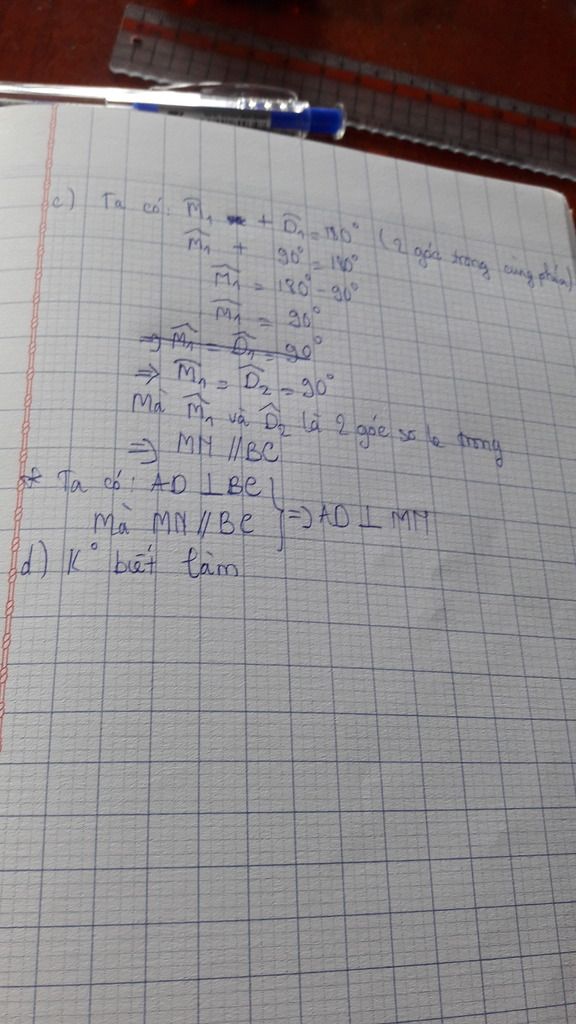 c) Ta có: M̂₁ + D̂₁ = 180° (2 góc trong cùng phía)
M̂₁ + 90° = 180°
M̂₁ = 180° - 90°
M̂₁ = 90°
⇒ M̂₁ = D̂₁ = 90°
⇒ M̂₁ = D̂₂ = 90°
Mà M̂₁ và D̂₂ là 2 góc so le trong
⇒ MN // BC
* Ta có: AD ⊥ BC
Mà MN // BC } ⇒ AD ⊥ MN
d) K° biết làm